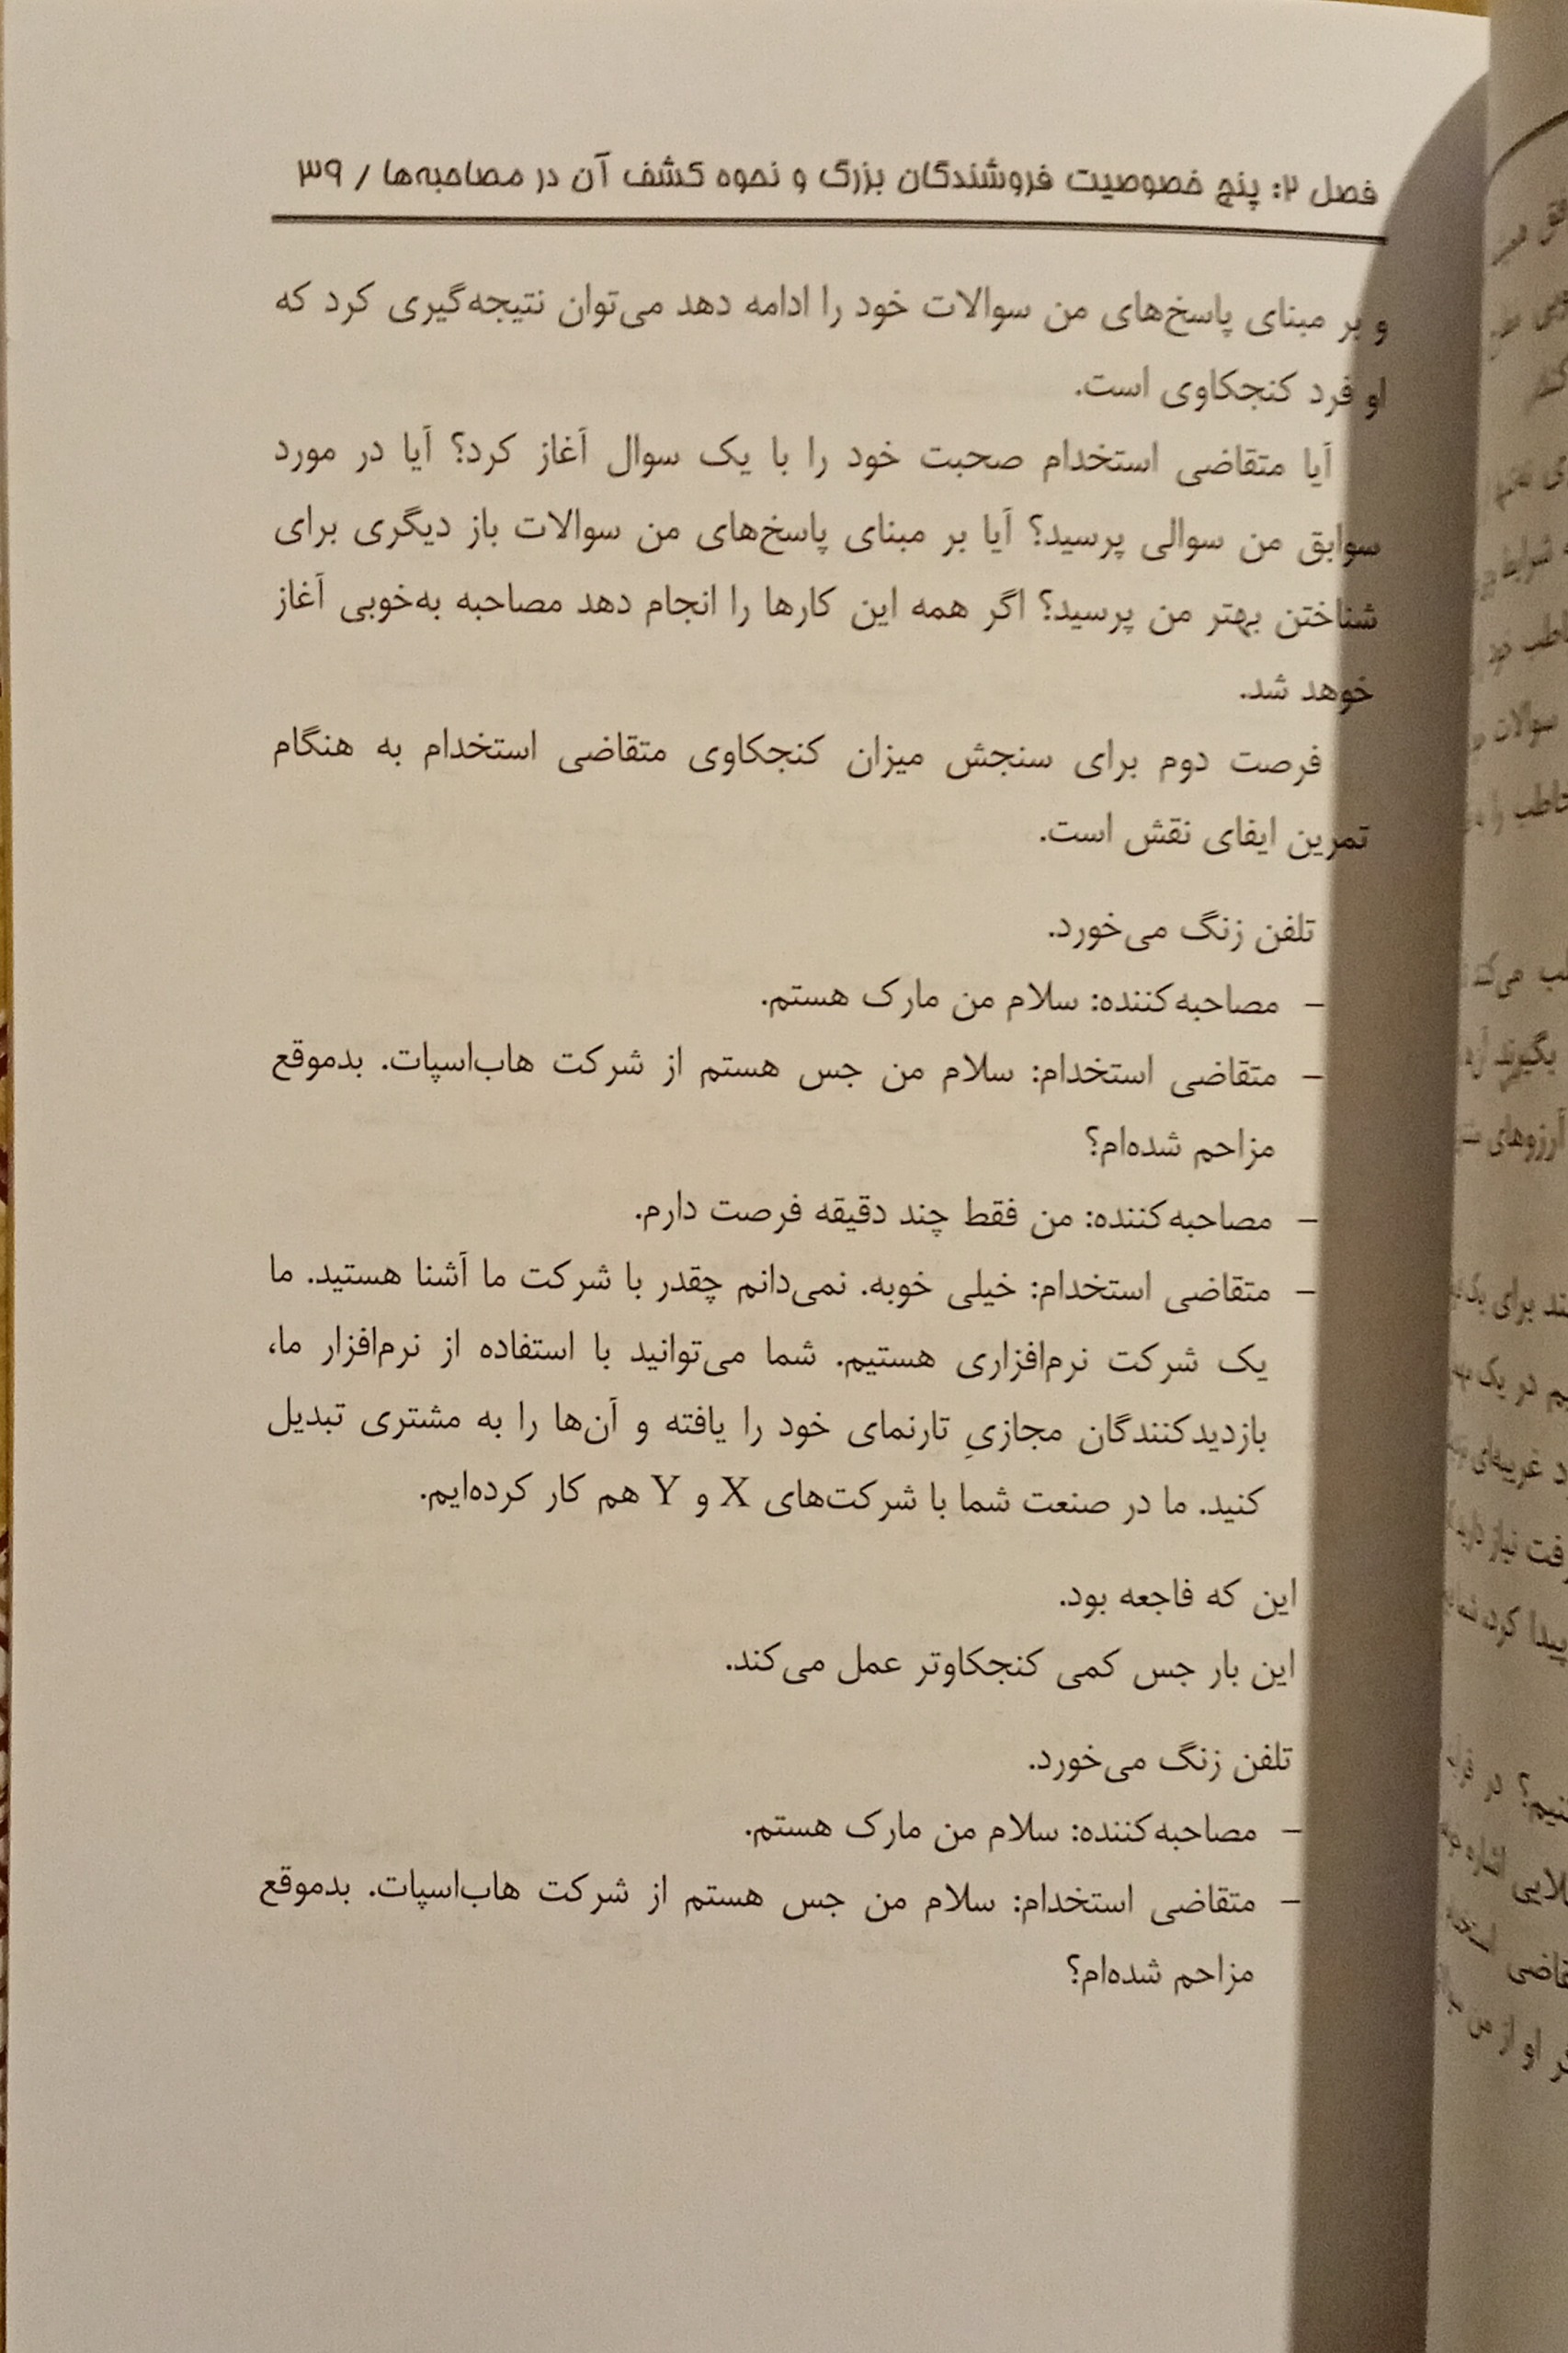 فصل ۲: پنج خصوصیت فروشندگان بزرگ و نحوه کشف آن در مصاحبه‌ها / ۳۹
و بر مبنای پاسخ‌های من سوالات خود را ادامه دهد می‌توان نتیجه‌گیری کرد که
او فرد کنجکاوی است.
آیا متقاضی استخدام صحبت خود را با یک سوال آغاز کرد؟ آیا در مورد
سوابق من سوالی پرسید؟ آیا بر مبنای پاسخ‌های من سوالات باز دیگری برای
شناختن بهتر من پرسید؟ اگر همه این کارها را انجام دهد مصاحبه به‌خوبی آغاز
خواهد شد.
فرصت دوم برای سنجش میزان کنجکاوی متقاضی استخدام به هنگام
تمرین ایفای نقش است.
تلفن زنگ می‌خورد.
– مصاحبه‌کننده: سلام من مارک هستم.
– متقاضی استخدام: سلام من جس هستم از شرکت هاب‌اسپات. بدموقع
مزاحم شده‌ام؟
– مصاحبه‌کننده: من فقط چند دقیقه فرصت دارم.
– متقاضی استخدام: خیلی خوبه. نمی‌دانم چقدر با شرکت ما آشنا هستید. ما
یک شرکت نرم‌افزاری هستیم. شما می‌توانید با استفاده از نرم‌افزار ما،
بازدیدکنندگان مجازیِ تارنمای خود را یافته و آن‌ها را به مشتری تبدیل
کنید. ما در صنعت شما با شرکت‌های X و Y هم کار کرده‌ایم.
این که فاجعه بود.
این بار جس کمی کنجکاوتر عمل می‌کند.
تلفن زنگ می‌خورد.
– مصاحبه‌کننده: سلام من مارک هستم.
– متقاضی استخدام: سلام من جس هستم از شرکت هاب‌اسپات. بدموقع
مزاحم شده‌ام؟